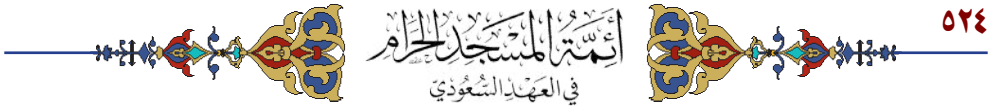 ٥٢٤
أَئِمَّةُ المَسْجِدِ الحَرَامِ
في العَهْدِ السُّعُوديّ